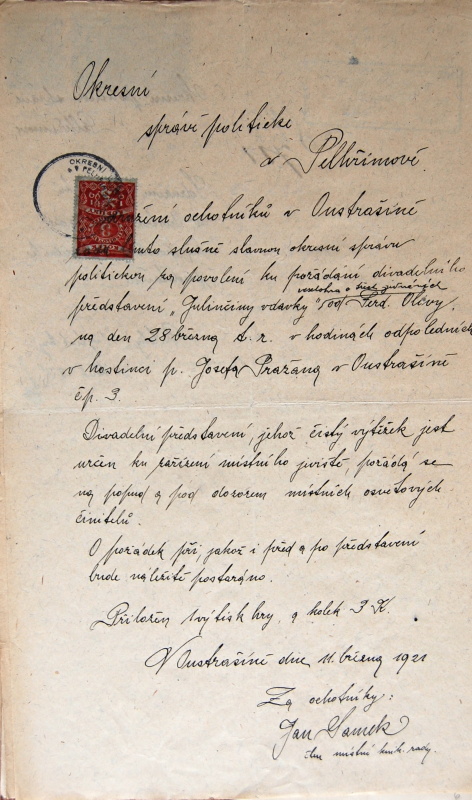 Okresní
správě politické
v Pelhřimově.
OKRESNÍ
ochotníků v Onstrašíně
slušně slavnou okresní správu
politickou za povolení ku pořádání divadelního
veselohra o třech jednáních
představení „Julinčiny vdavky" od Ferd. Olévy,
na den 28 března t. r. v hodinách odpoledních
v hostinci p. Josefa Pražana v Onstrašíně
čp. 3.
Divadelní představení, jehož čistý výtěžek jest
určen ku zařízení místního jeviště, pořádá se
na popud a pod dozorem místních osvětových
činitelů.
O pořádek při, jakož i před a po představení
bude náležitě postaráno.
Přiložen 1 výtisk hry, a kolek 3 K.
V Onstrašíně dne 11. března 1921
Za ochotníky:
Jan Samek
místní knih. rady.